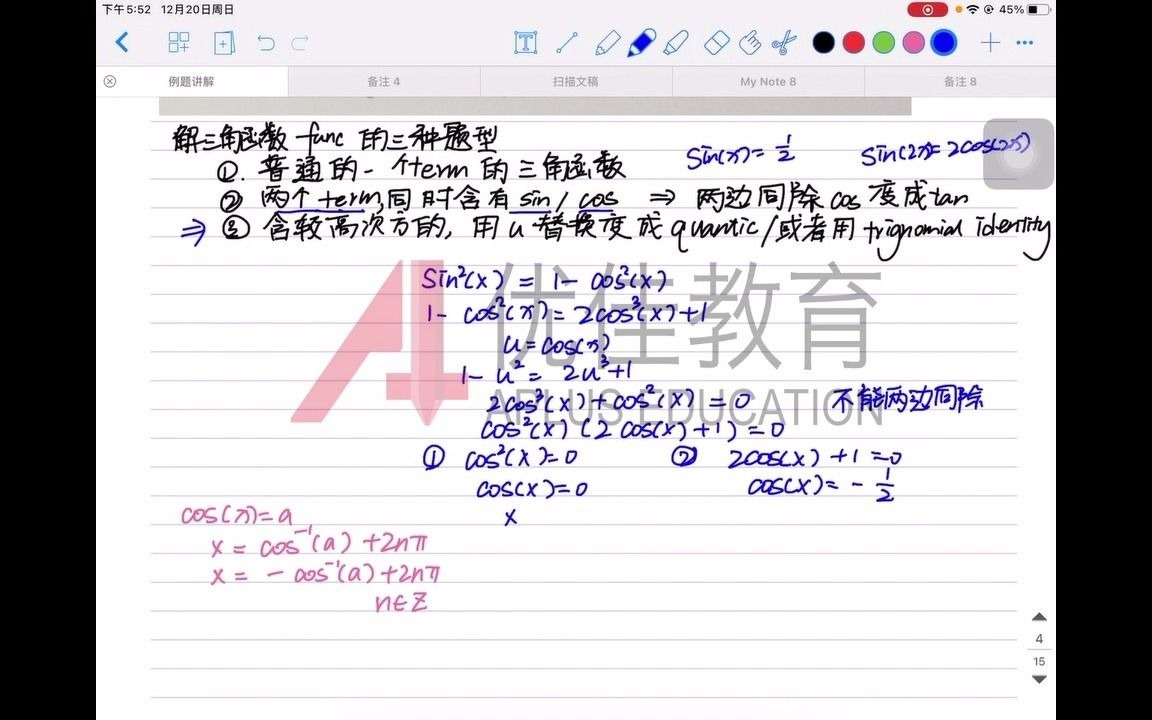 下午5:52 12月20日周日
45%
例题讲解 备注 4 扫描文稿 My Note 8 备注 8
解三角函数 func 的三种题型
①. 普通的一个term的三角函数 sin(x)= 1/2 sin(2x)= 2cos(2x)
② 两个term,同时含有 sin / cos ⇒ 两边同除 cos 变成 tan
⇒ ③ 含较高次方的, 用 u 替换变成 quantic/或者用 trignomial identity
优佳教育
APLUS EDUCATION
sin²(x) = 1- cos²(x)
1- cos²(x) = 2cos³(x)+1
u=cos(x)
1- u² = 2u³+1
2cos³(x)+cos²(x) = 0 不能两边同除
cos²(x) (2 cos(x)+1) =0
① cos²(x)=0 ② 2cos(x) +1 =0
cos(x)=0 cos(x)= - 1/2
x
cos(x)=a
x = cos⁻¹(a) +2nπ
x = - cos⁻¹(a)+2nπ
n∈Z
4
15